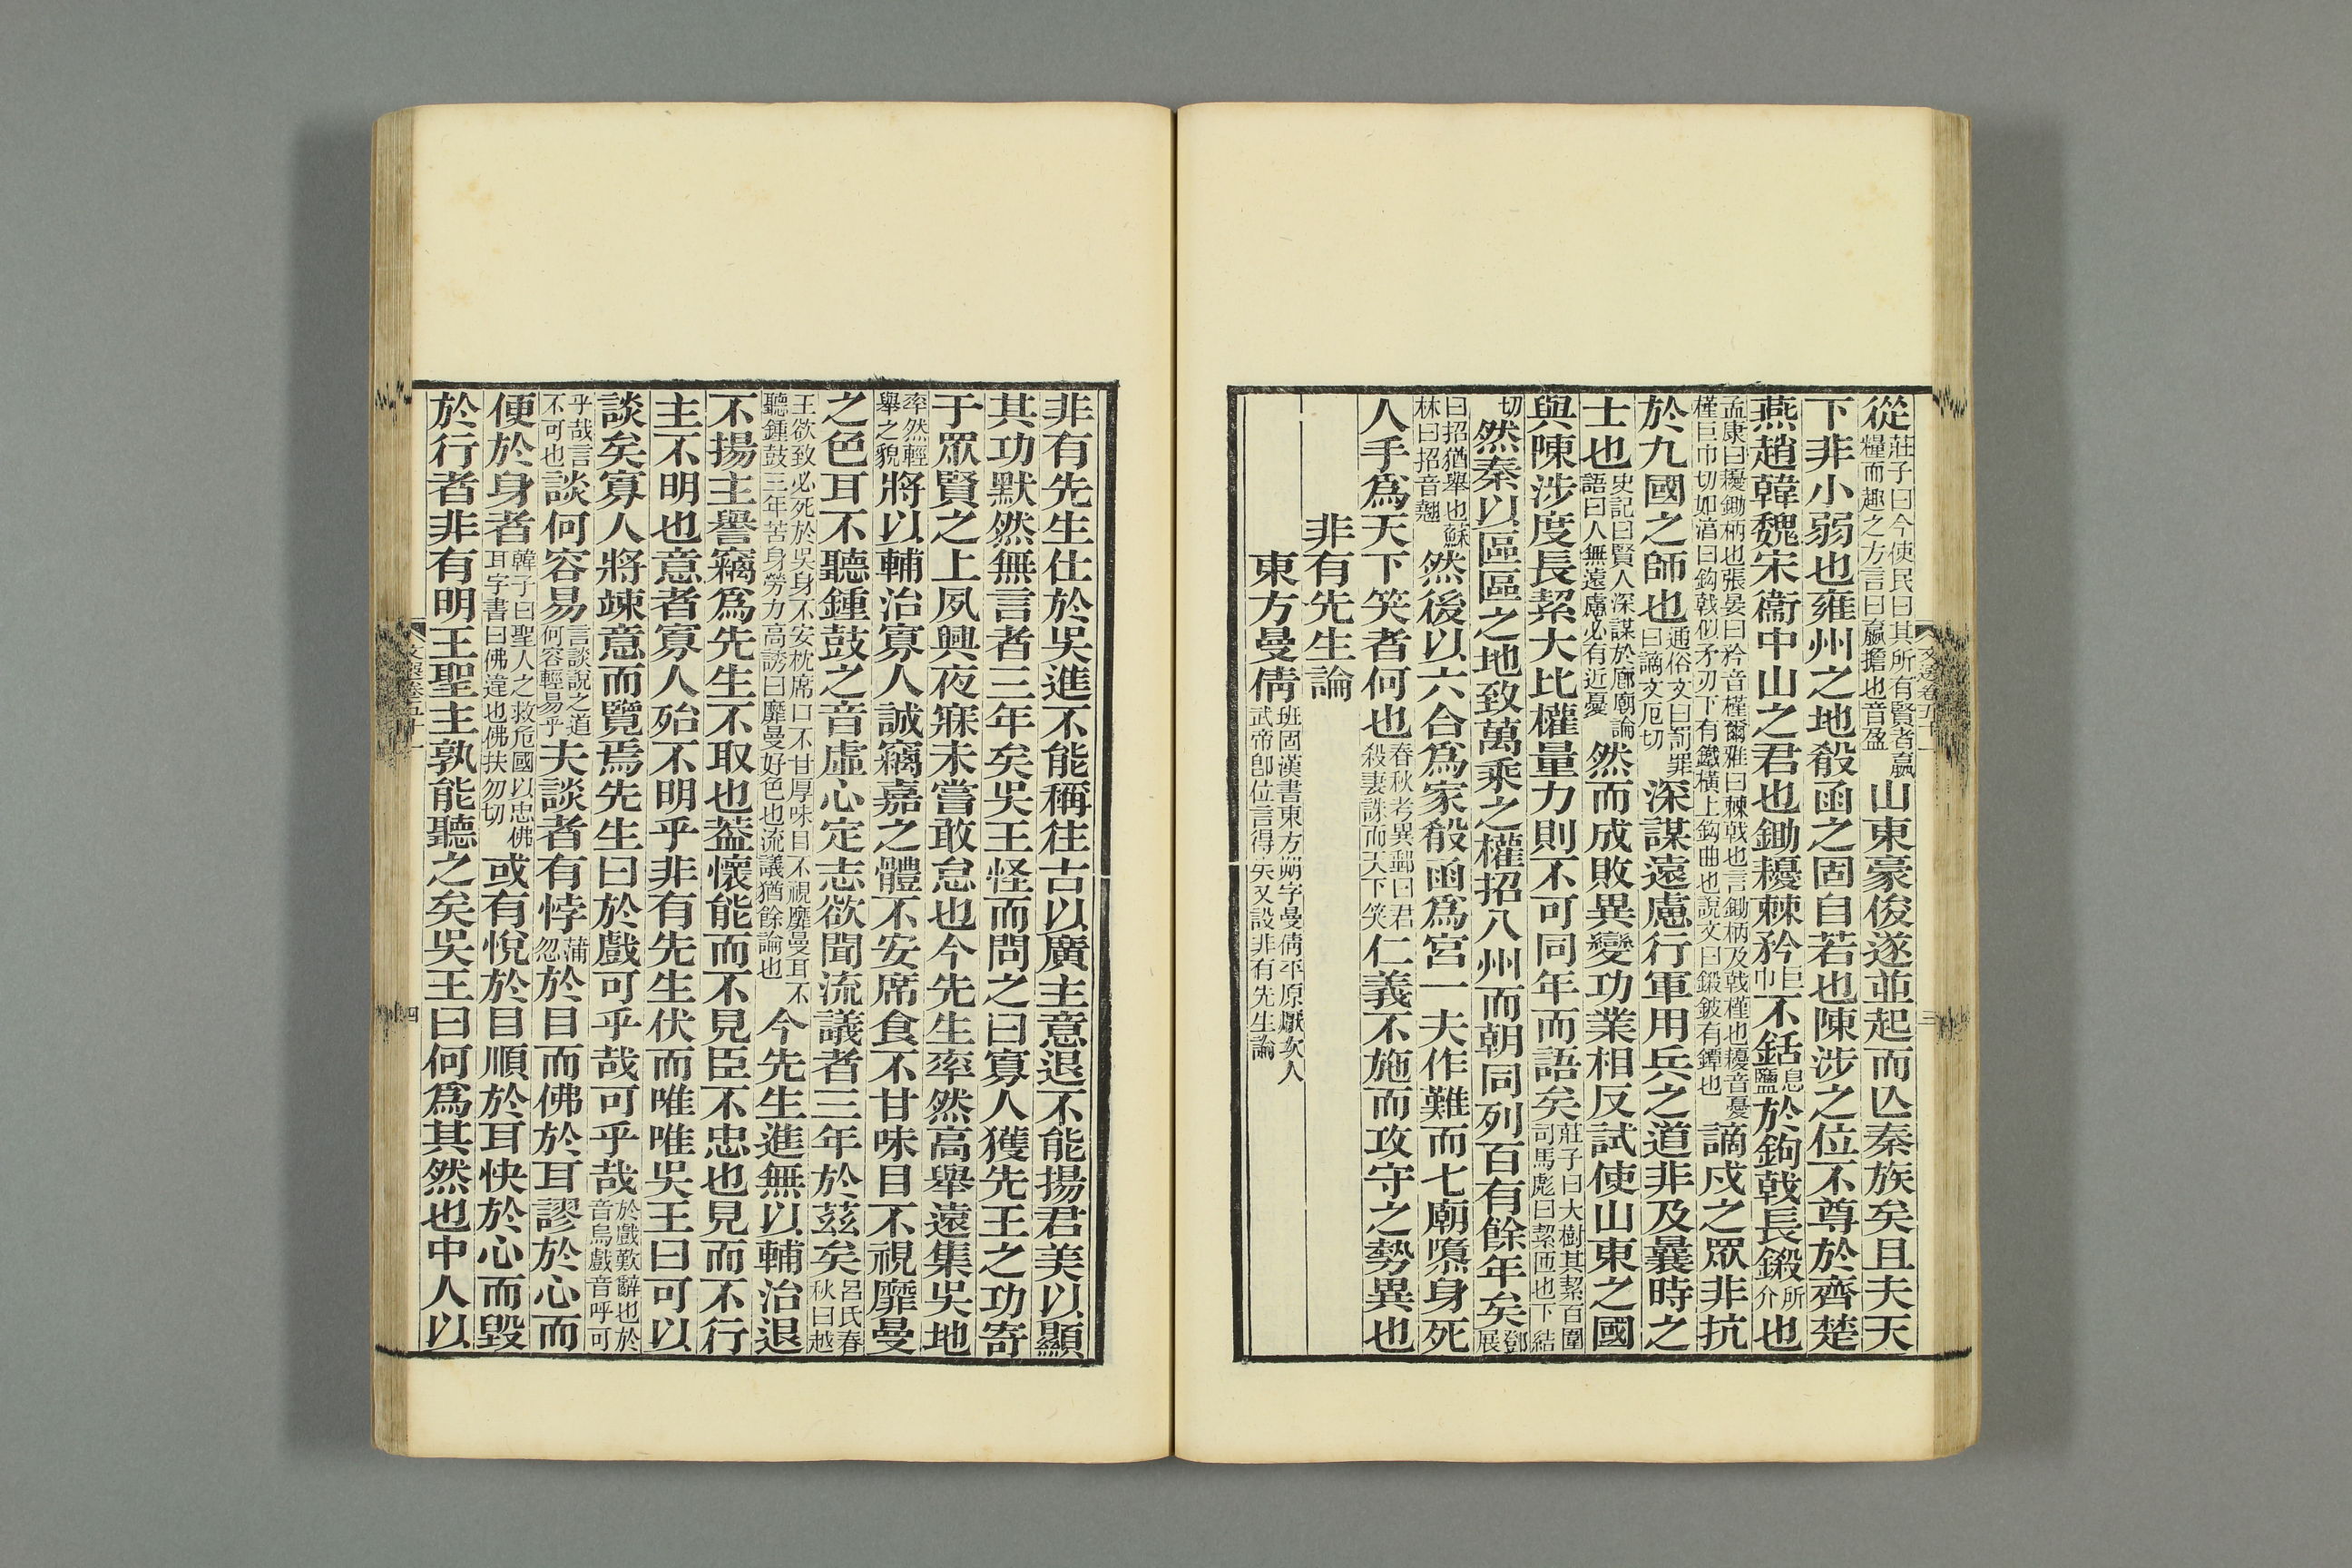 從莊子曰今使民曰某所有賢者贏糧而趣之方言曰贏擔也音盈山東豪俊遂並起而亾秦族矣且夫天
下非小弱也雍州之地殽函之固自若也陳涉之位不尊於齊楚
燕趙韓魏宋衞中山之君也鋤耰棘矜巨巾不銛息鹽於鉤戟長鎩所介也
孟康曰耰鋤柄也張晏曰矜音槿爾雅曰棘戟也言鋤柄及戟槿也耰音憂槿巨巾切如湻曰鉤戟似矛刃下有鐵橫上鉤曲也說文曰鎩鈹有鐔也謫戍之眾非抗
於九國之師也通俗文曰罰罪曰謫丈厄切深謀遠慮行軍用兵之道非及曩時之
士也史記曰賢人深謀於廊廟論語曰人無遠慮必有近憂然而成敗異變功業相反試使山東之國
與陳涉度長絜大比權量力則不可同年而語矣莊子曰大樹其絜百圍司馬彪曰絜匝也下結
切然秦以區區之地致萬乘之權招八州而朝同列百有餘年矣鄧展
曰招猶舉也蘇林曰招音翹然後以六合爲家殽函爲宮一夫作難而七廟隳身死
人手爲天下笑者何也春秋考異郵曰君殺妻誅而天下笑仁義不施而攻守之勢異也
非有先生論
東方曼倩班固漢書東方朔字曼倩平原厭次人武帝卽位言得失又設非有先生論
非有先生仕於吳進不能稱往古以廣主意退不能揚君美以顯
其功默然無言者三年矣吳王怪而問之曰寡人獲先王之功寄
于眾賢之上夙興夜寐未嘗敢怠也今先生率然高舉遠集吳地
率然輕舉之貌將以輔治寡人誠竊嘉之體不安席食不甘味目不視靡曼
之色耳不聽鍾鼓之音虛心定志欲聞流議者三年於茲矣呂氏春秋曰越
王欲致必死於吳身不安枕席口不甘厚味目不視靡曼耳不聽鍾鼓三年苦身勞力高誘曰靡曼好色也流議猶餘論也今先生進無以輔治退
不揚主譽竊爲先生不取也葢懷能而不見臣不忠也見而不行
主不明也意者寡人殆不明乎非有先生伏而唯唯吳王曰可以
談矣寡人將竦意而覽焉先生曰於戲可乎哉可乎哉於戲歎辭也於音烏戲音呼可
乎哉言不可也談何容易言談說之道何容輕易乎夫談者有悖蒲忽於目而佛於耳謬於心而
便於身者韓子曰聖人之救危國以忠佛耳字書曰佛違也佛扶勿切或有悅於目順於耳快於心而毀
於行者非有明王聖主孰能聽之矣吳王曰何爲其然也中人以
四